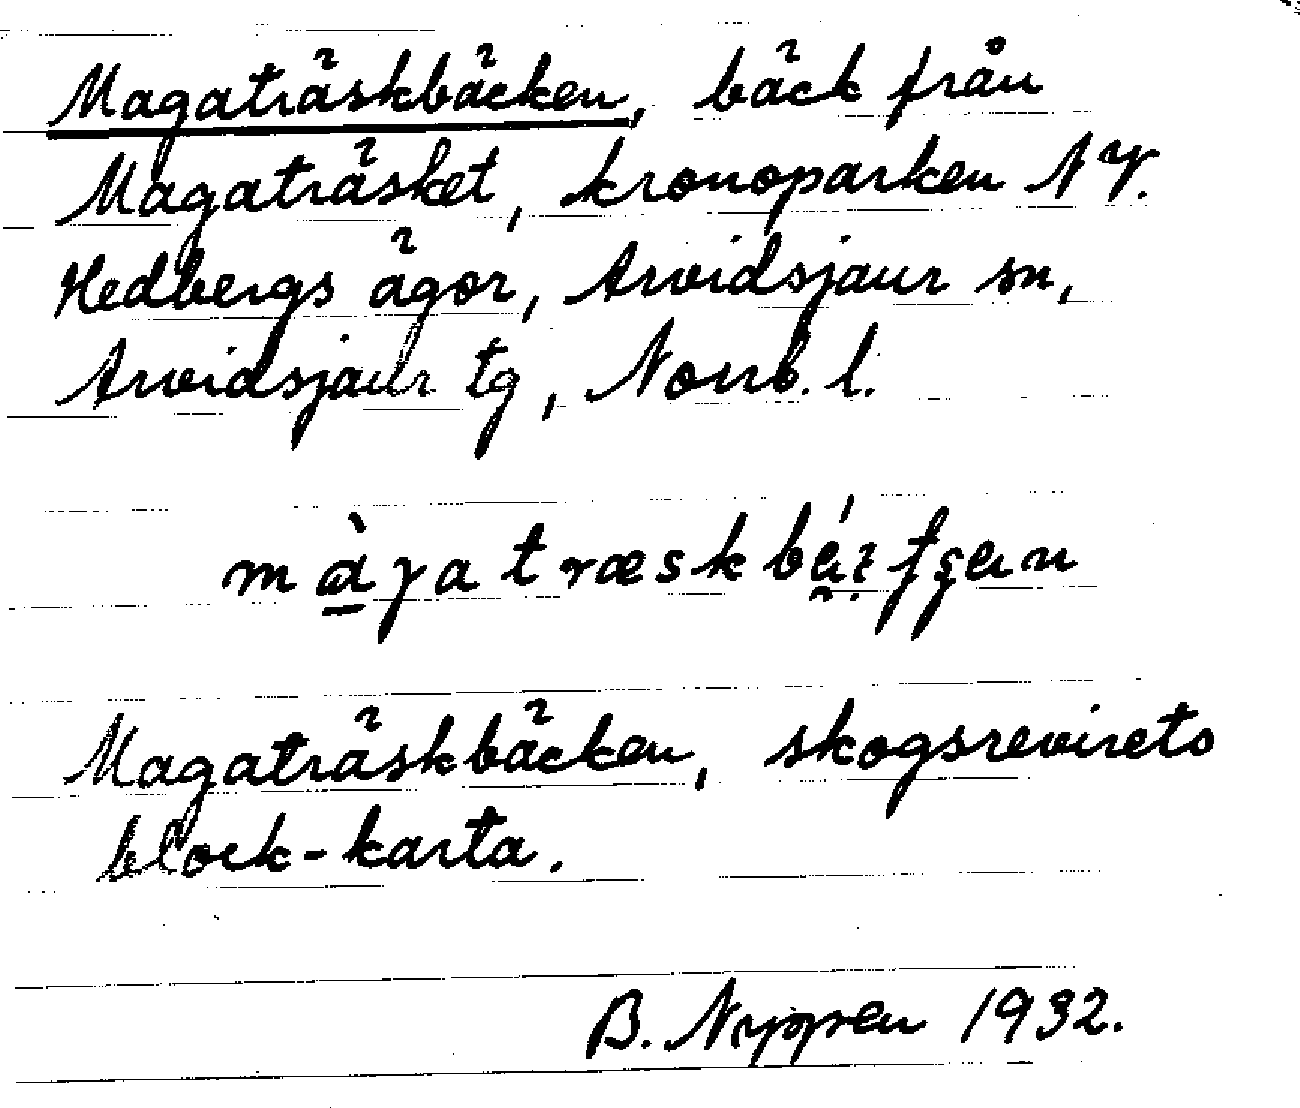 Magaträskbäcken, bäck från
Magaträsket, kronoparken NV.
Hedbergs ägor, Arvidsjaur sn,
Arvidsjaur tg, Norrb. l.
Magaträskbäcken, skogsrevirets
block-karta.
B. Nyppen 1932.